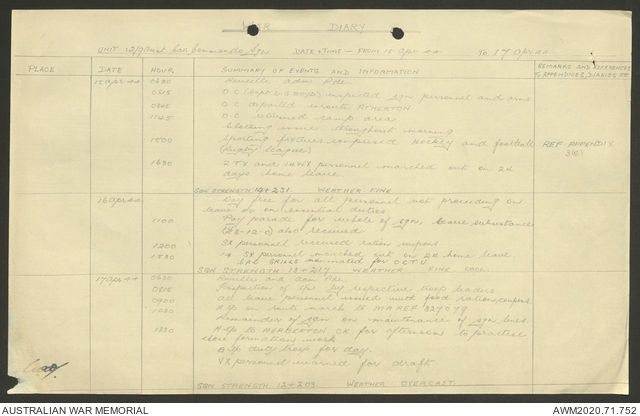 WAR DIARY
UNIT 2/9 Aust Cav Commando Sqn DATE & TIME - FROM 15 Apr 44 To 17 Apr 44
PLACE DATE HOUR SUMMARY OF EVENTS AND INFORMATION REMARKS AND REFERENCES
TO APPENDICES, DIARIES ETC
15 Apr 44 0630 Reveille - adm Pde
0815 O C inspected sqn personnel and arms
O C departed enroute ATHERTON
1145 O C returned camp area
Clothing issue throughout morning
1500 Sporting fixtures comprised Hockey and football REF APPENDIX
(Rugby league)
1630 and personnel marched out on 24
days home leave
SQN STRENGTH 14+231 WEATHER FINE
16 Apr 44 Day free for all personnel not proceeding on
leave or on essential duties
1100 Pay parade for whole of sqn, leave subsistance
(£3-12-0) also received
1200 SX personnel received ration coupons
1530 14 SX personnel marched out on 24 home leave
nominated for OCTU
SQN STRENGTH 13+217 WEATHER FINE COOL
17 Apr 44 0630 Reveille and adm Pde
0815 Inspection of by respective troop leaders
0900 All leave personnel issued with food ration coupons
A Tp on route march to MAREF 327079
Remainder of sqn on maintenance of sqn lines
1330 A Tp to HERBERTON CK for afternoon to practise
close formation work
B Tp duty troop for day.
VX personnel warned for draft
SQN STRENGTH 12+203 WEATHER OVERCAST
AUSTRALIAN WAR MEMORIAL AWM2020.71.752